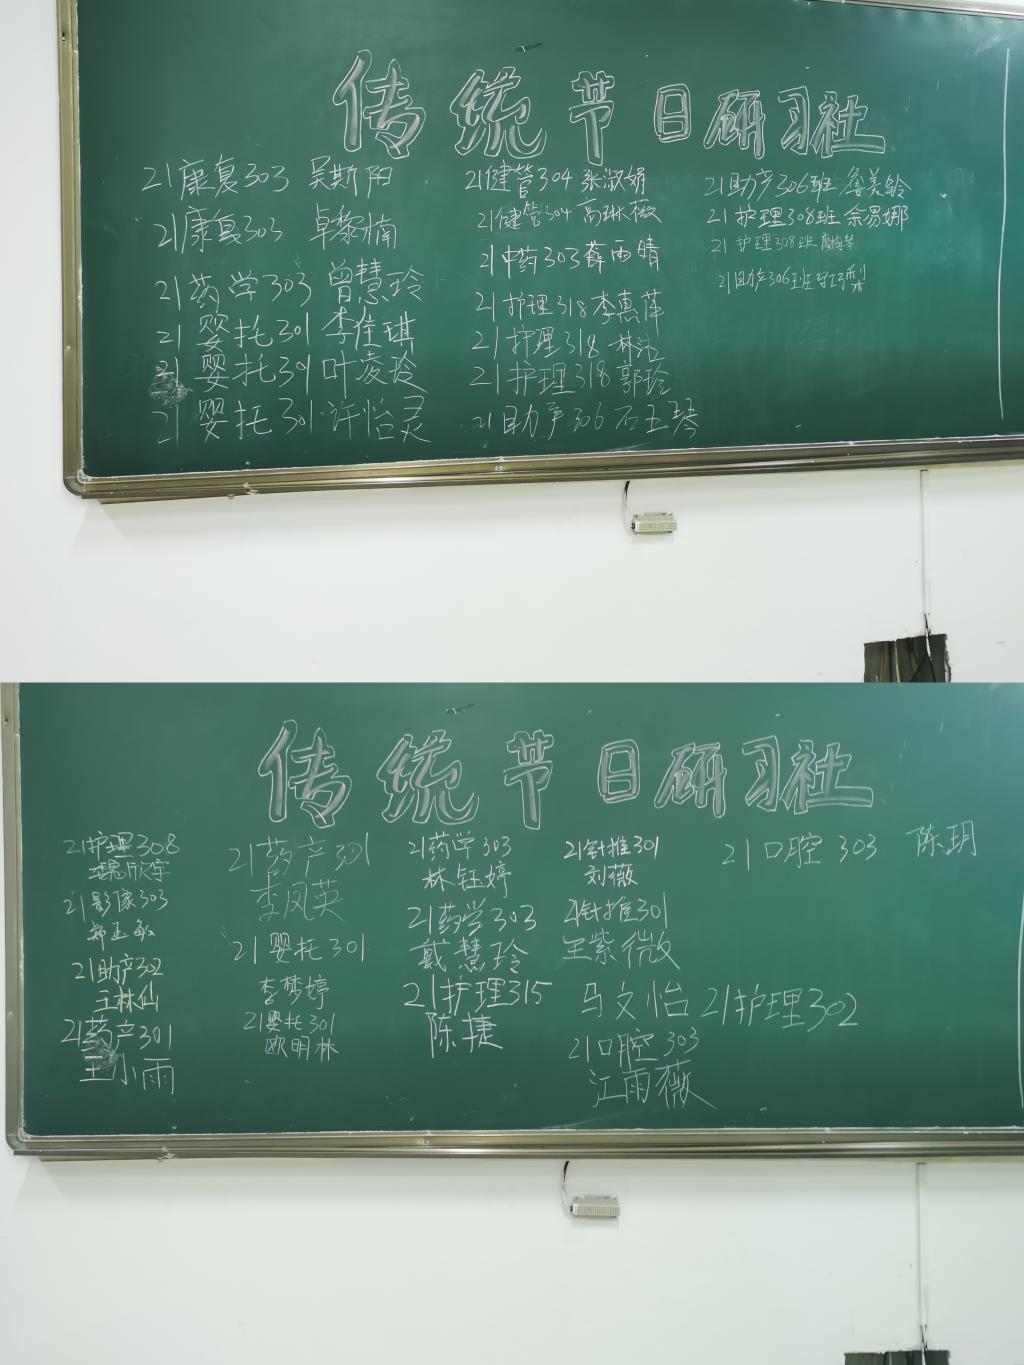 传统节日研习社
21康复303 吴斯阳
21康复303 卓黎楠
21药学303 曾慧玲
21婴托301 李佳琪
21婴托301 叶凌玲
21婴托301 许怡灵
21健管304 张淑娟
21健管304 高琳薇
21中药303 薛雨晴
21护理318 李惠萍
21护理318 林洁
21护理318 郭玲
21助产306 石玉琴
21助产306班 詹美铃
21护理308班 余易娜
21护理308班
21助产306班
传统节日研习社
21护理308
魏欣宇
21影像303
郑玉敏
21助产302
王林仙
21药产301
王小雨
21药产301
李凤英
21婴托301
李梦婷
21婴托301
欧明林
21药学303
林钰婷
21药学303
戴慧玲
21护理315
陈捷
21针推301
刘薇
21针推301
王紫微
马文怡 21护理302
21口腔303
江雨薇
21口腔303 陈玥